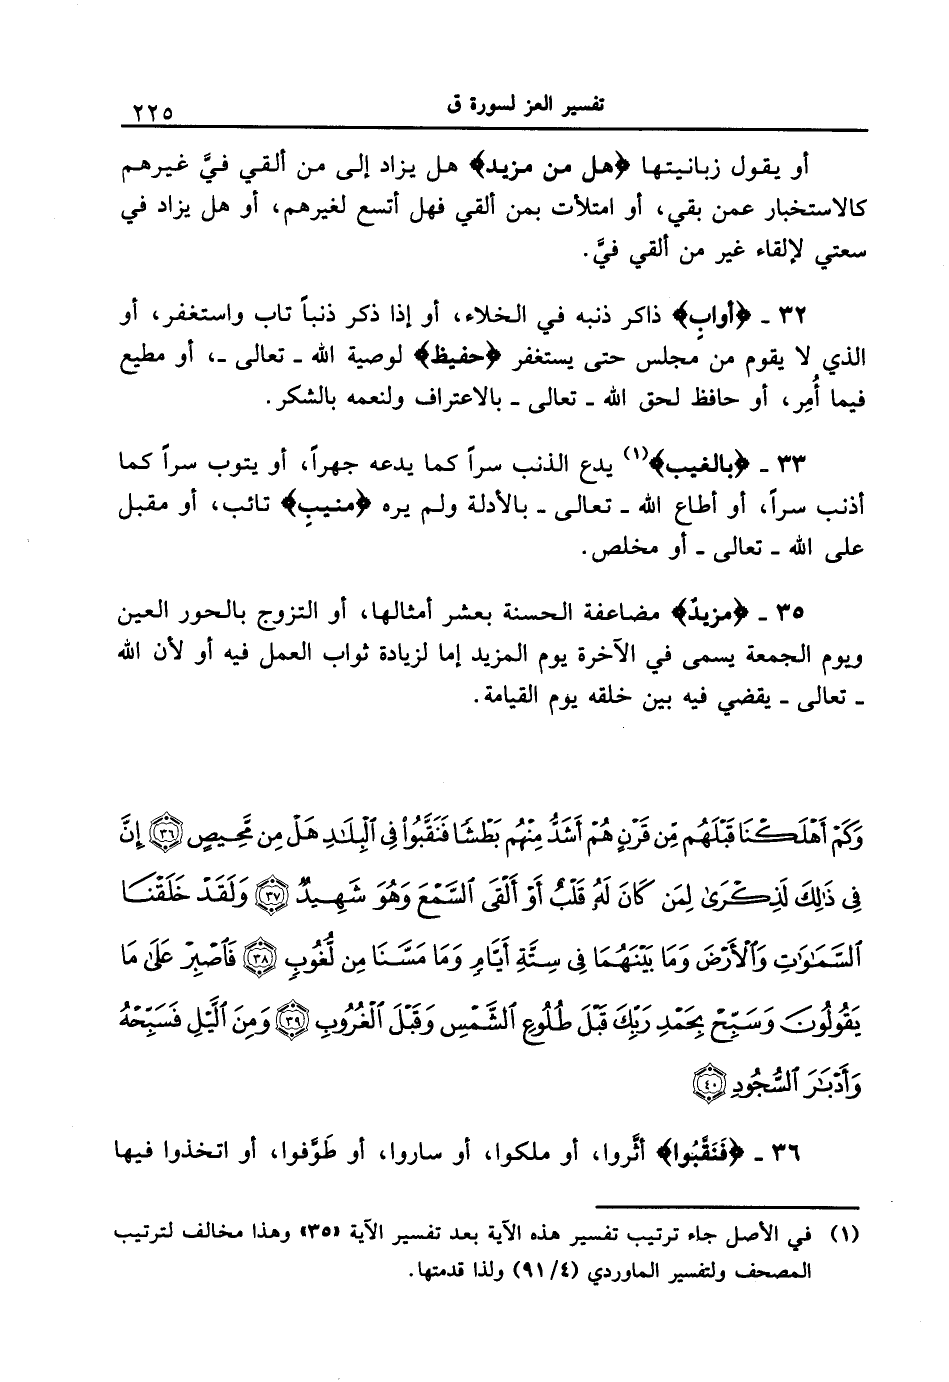 تفسير العز لسورة ق
٢٢٥
أو يقول زبانيتها ﴿هل من مزيد﴾ هل يزاد إلى من ألقي فيَّ غيرهم
كالاستخبار عمن بقي، أو امتلأت بمن ألقي فهل أتسع لغيرهم، أو هل يزاد في
سعتي لإلقاء غير من ألقي فيَّ.
٣٢ ـ ﴿أوابٍ﴾ ذاكر ذنبه في الخلاء، أو إذا ذكر ذنباً تاب واستغفر، أو
الذي لا يقوم من مجلس حتى يستغفر ﴿حفيظ﴾ لوصية الله ـ تعالى ـ، أو مطيع
فيما أُمِر، أو حافظ لحق الله ـ تعالى ـ بالاعتراف ولنعمه بالشكر.
٣٣ ـ ﴿بالغيب﴾(١) يدع الذنب سراً كما يدعه جهراً، أو يتوب سراً كما
أذنب سراً، أو أطاع الله ـ تعالى ـ بالأدلة ولم يره ﴿منيبٍ﴾ تائب، أو مقبل
على الله ـ تعالى ـ أو مخلص.
٣٥ ـ ﴿مزيدٌ﴾ مضاعفة الحسنة بعشر أمثالها، أو التزوج بالحور العين
ويوم الجمعة يسمى في الآخرة يوم المزيد إما لزيادة ثواب العمل فيه أو لأن الله
ـ تعالى ـ يقضي فيه بين خلقه يوم القيامة.
وَكَمْ أَهْلَكْنَا قَبْلَهُم مِّن قَرْنٍ هُمْ أَشَدُّ مِنْهُم بَطْشًا فَنَقَّبُوا۟ فِى ٱلْبِلَٰدِ هَلْ مِن مَّحِيصٍ ﴿٣٦﴾ إِنَّ
فِى ذَٰلِكَ لَذِكْرَىٰ لِمَن كَانَ لَهُۥ قَلْبٌ أَوْ أَلْقَى ٱلسَّمْعَ وَهُوَ شَهِيدٌ ﴿٣٧﴾ وَلَقَدْ خَلَقْنَا
ٱلسَّمَٰوَٰتِ وَٱلْأَرْضَ وَمَا بَيْنَهُمَا فِى سِتَّةِ أَيَّامٍ وَمَا مَسَّنَا مِن لُّغُوبٍ ﴿٣٨﴾ فَٱصْبِرْ عَلَىٰ مَا
يَقُولُونَ وَسَبِّحْ بِحَمْدِ رَبِّكَ قَبْلَ طُلُوعِ ٱلشَّمْسِ وَقَبْلَ ٱلْغُرُوبِ ﴿٣٩﴾ وَمِنَ ٱلَّيْلِ فَسَبِّحْهُ
وَأَدْبَٰرَ ٱلسُّجُودِ ﴿٤٠﴾
٣٦ ـ ﴿فَنَقَّبُوا﴾ أثَّروا، أو ملكوا، أو ساروا، أو طَوَّفوا، أو اتخذوا فيها
(١) في الأصل جاء ترتيب تفسير هذه الآية بعد تفسير الآية «٣٥» وهذا مخالف لترتيب
المصحف ولتفسير الماوردي (٩١/٤) ولذا قدمتها.